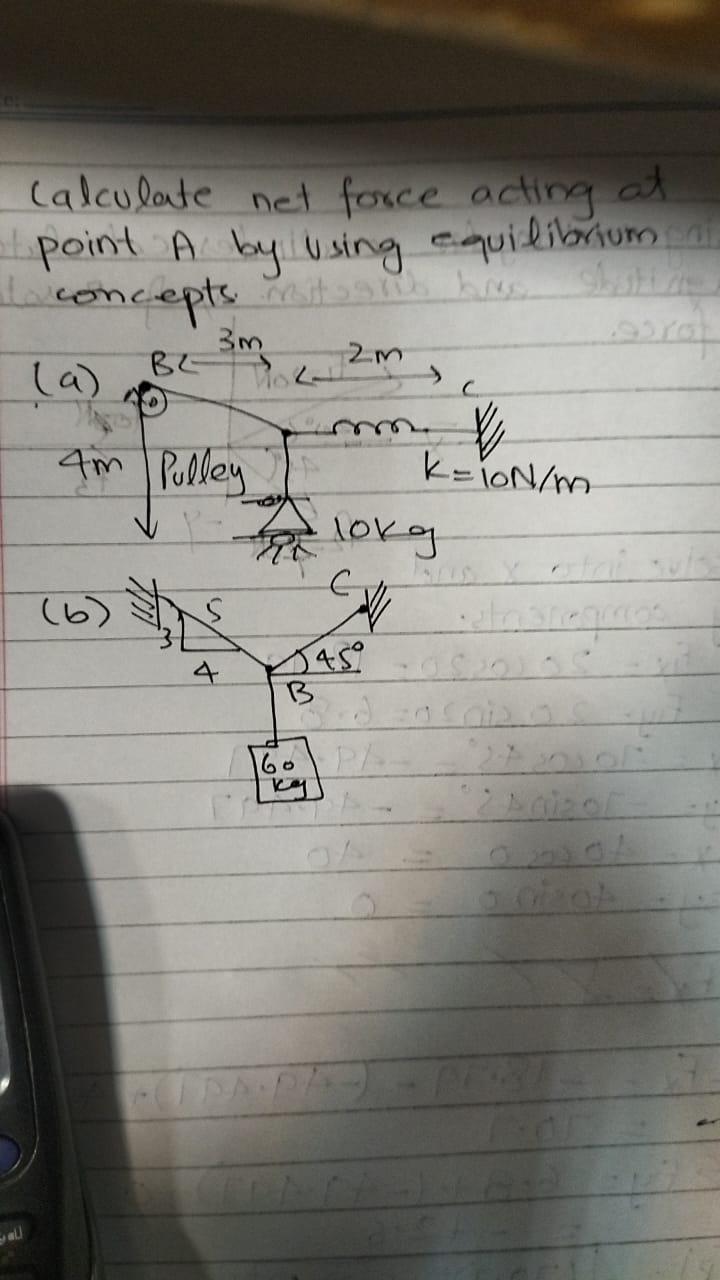 Calculate net force acting at
point A by using equilibrium
concepts.
(a) B 3m 2m C
4m Pulley K=10N/m
10kg
(b) 5 C
3 4 45°
B
60
kg